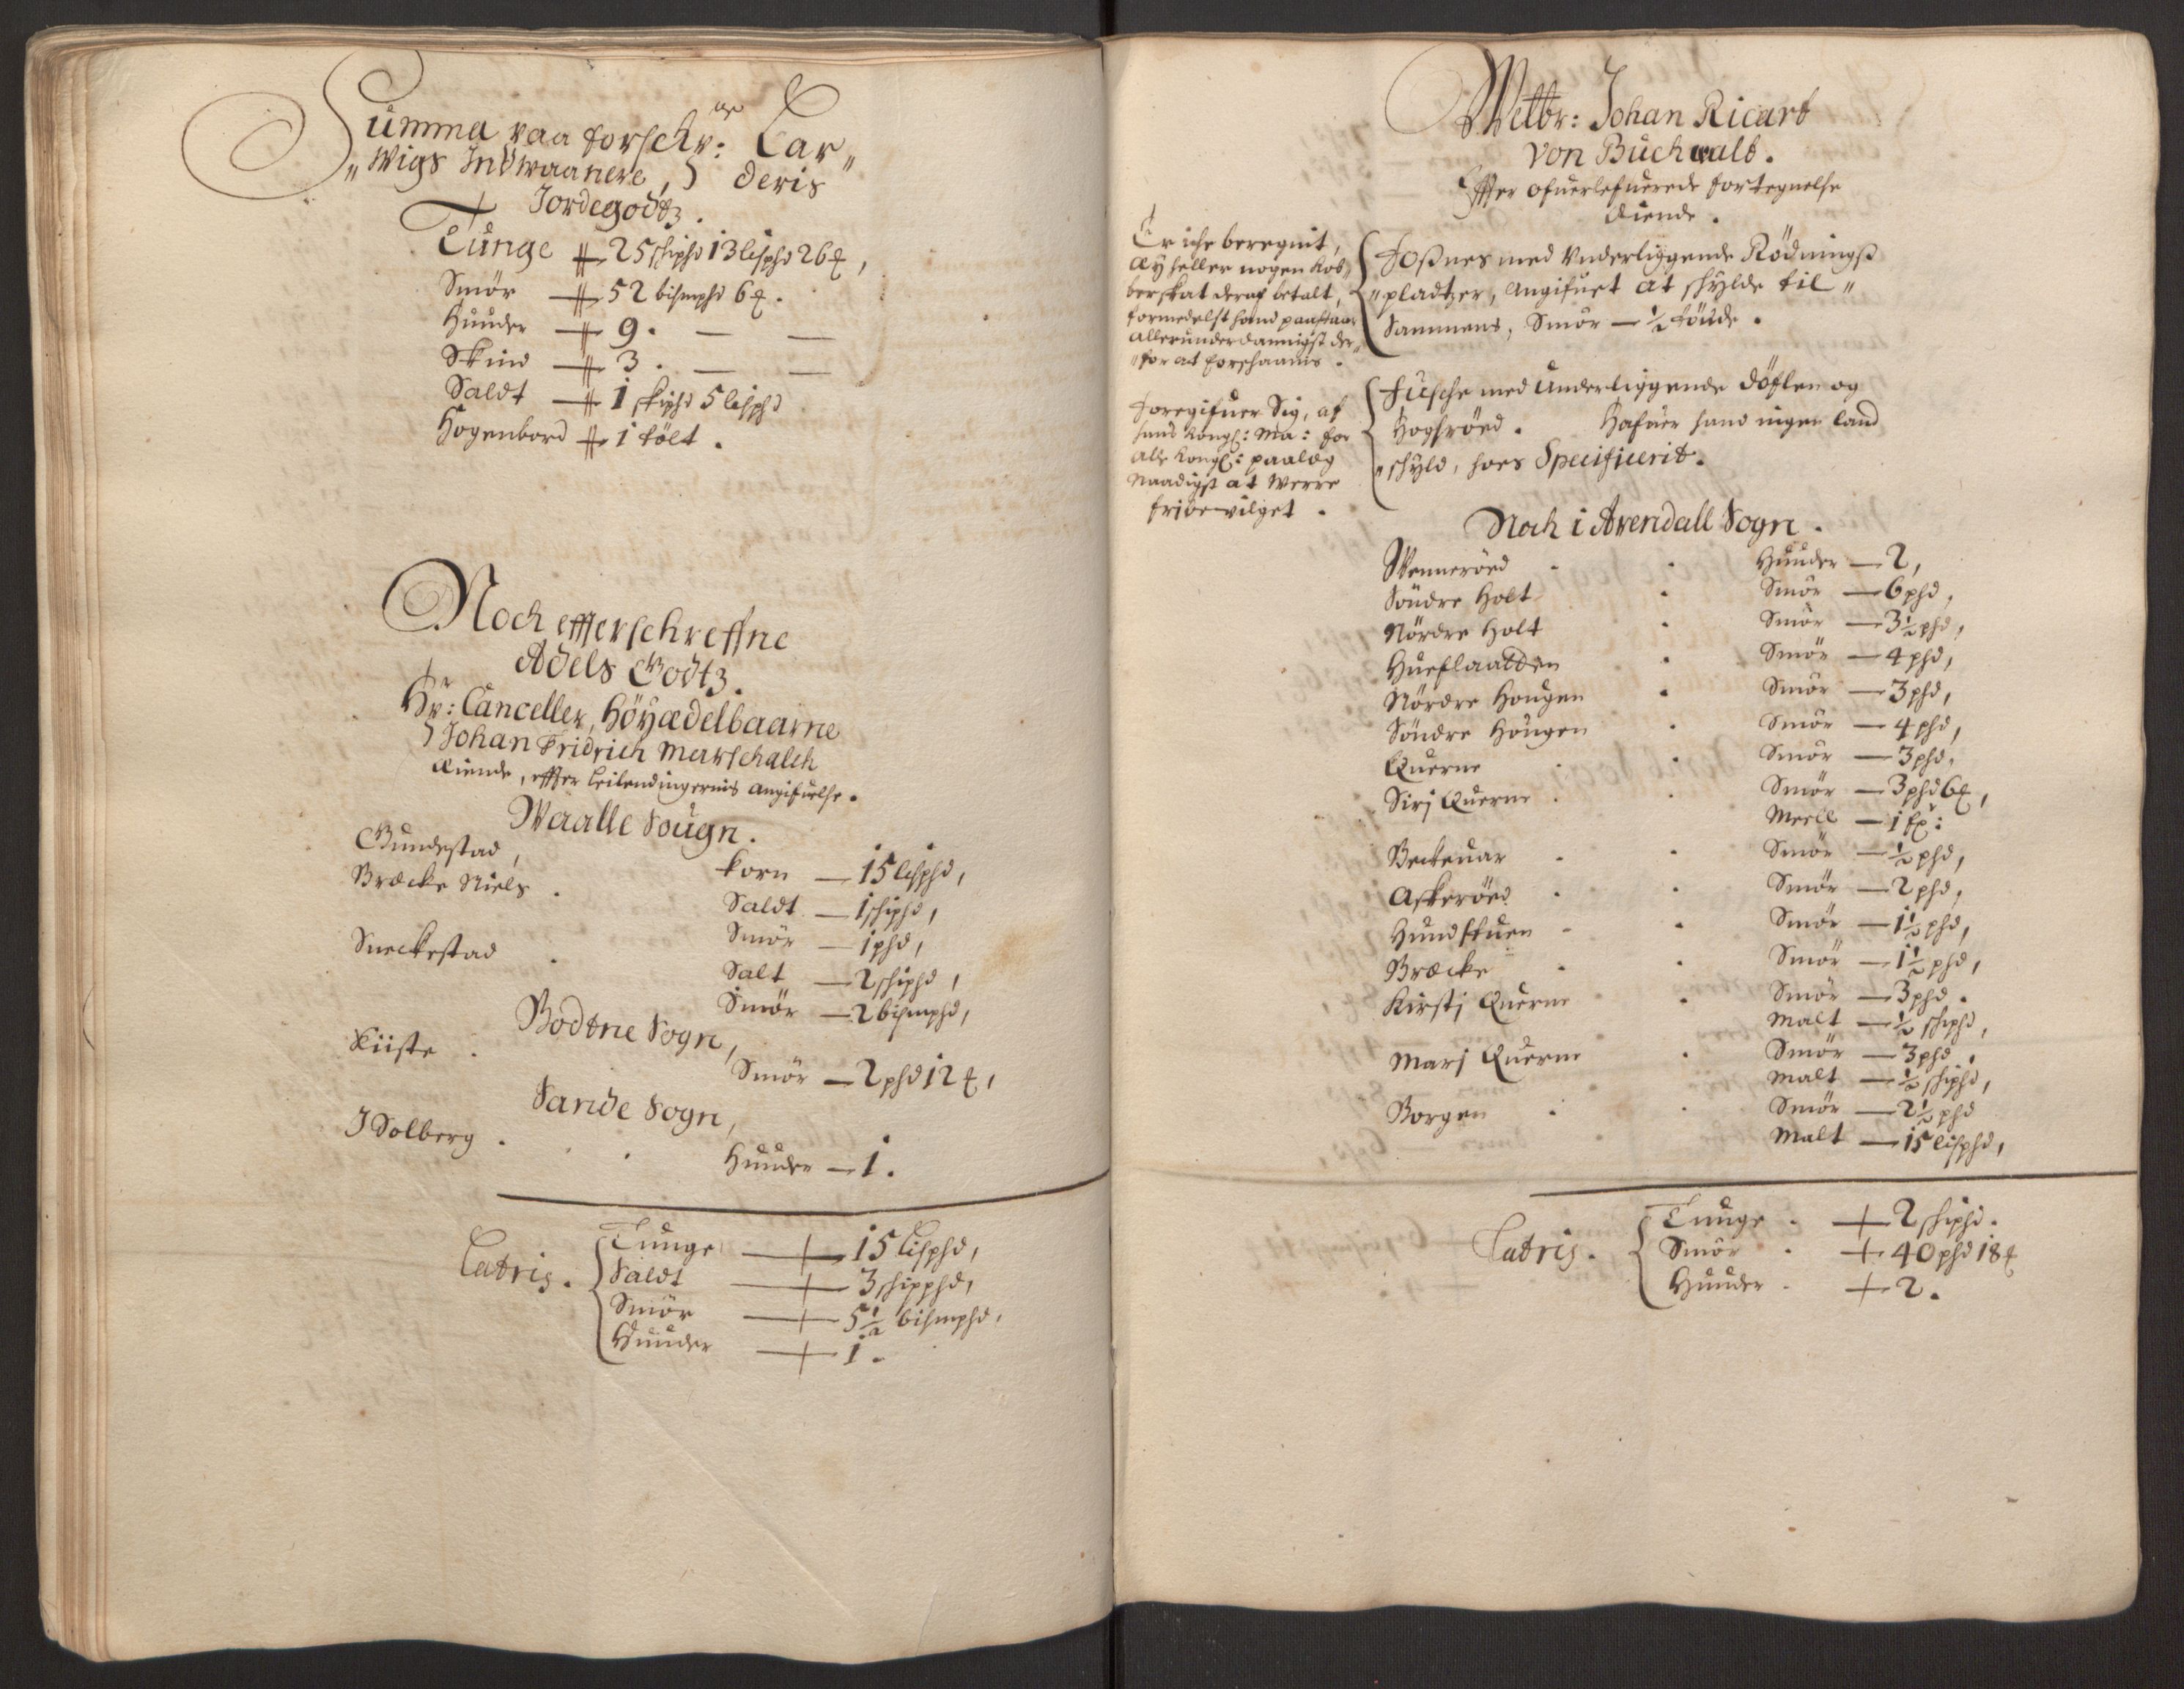 Summa paa forschr:ne Lar„
„Wigs Indwaanere, deris
Jordegodtz.
Tunge 25 schipd 13 lispd 26 ℔,
Smör 52 bismpd 6 ℔.
Huuder 9. — —
Skind 3. — —
Saldt 1 skipd 5 lispd
Hogenbord 1 tölt.
Noch effterschreffne
Adels Godtz.
Hr: Canceller, Höÿædelbaarne
Johan Fridrich Marschalch
Eiende, effter Leilendingernis angifuelse.
Waalle Sougn.
Gundestad, Korn — 15 lispd,
Bræcke Niels . Saldt — 1 schipd,
Smör — 1 pd,
Sneckestad . Salt — 2 schipd,
Smör — 2 bismpd,
Bodtne Sogn,
Kiiste . Smör — 2 pd 12 ℔,
Sande Sogn,
J Solberg . Huuder — 1.
Latris. Tunge — 15 lispd,
Saldt — 3 schippd,
Smör — 5½ bismpd,
Huuder — 1.
Welbr: Johan Ricart
von Buchwalt.
Effter ofuerlefuerede fortegnelse
Eiende.
Er iche beregnit,
Æÿ heller nogen Kob„
berskat deraf betalt,
formedelst hand paastaar
allerunderdannigst der„
„for at forschaanis.
Fossnes med Vnderliggende Rödningss
„pladtzer, Angifuet at schylde til„
Sammens, Smör — ½ tönde.
Foregifuer Sig, af
hans Kongl: Ma: for
alle Kongl: paalæg
Naadigst at Werre
fribevilget.
Fusche med Underliggende Döflen og
Hogsröed. Hafuer hand ingen land
„schyld, hoes Specificerit.
Noch i Arendall Sogn.
Wenneröed . . Huuder — 2,
Söndre Holt . Smör — 6 pd,
Nördre Holt . Smör — 3½ pd,
Hueflaatten . Smör — 4 pd,
Nördre Hougen . Smör — 3 pd,
Söndre Hougen . Smör — 4 pd,
Querne . . Smör — 3 pd,
Sirj Querne . . Smör — 3 pd 6 ℔,
Meell — 1
Beckeuar . . Smör — ½ pd,
Askeröed . . Smör — 2 pd,
Hundstuen . . Smör — 1½ pd,
Bræcke . . Smör — 1½ pd,
Kirstj Querne . . Smör — 3 pd.
Malt — ½ schipd,
Marj Querne . Smör — 3 pd.
Malt — ½ schipd,
Borgen . . Smör — 2½ pd
Malt — 15 lispd,
Latris. Tunge . 2 schipd.
Smör . 40 pd 18 ℔
Huuder . 2.